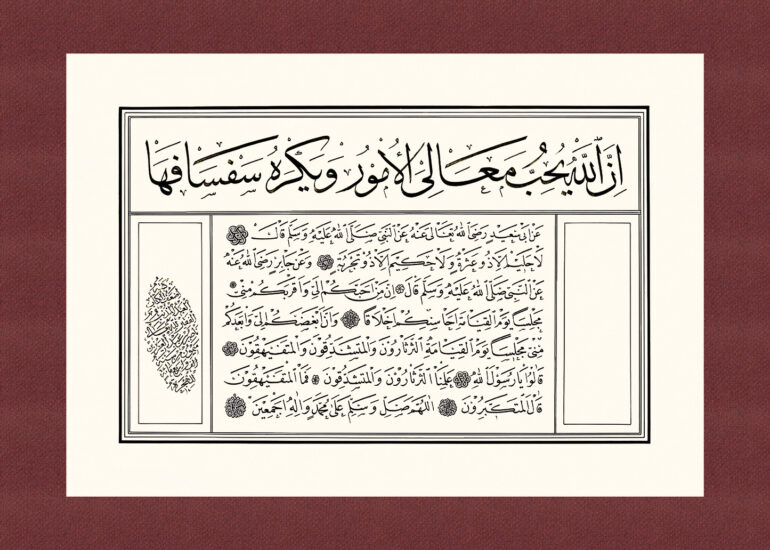 اِنَّ اللّٰهَ يُحِبُّ مَعَالِىَ الْاُمُوْرِ وَيَكْرَهُ سَفْسَافَهَا
عَنْ اَبِى سَعِيدٍ رَضِىَ اللّٰهُ تَعَالٰى عَنْهُ عَنِ النَّبِىِّ صَلَّى اللّٰهُ عَلَيْهِ وَسَلَّمَ قَالَ
لَا حَلِيمَ اِلَّا ذُو عَثْرَةٍ وَلَا حَكِيمَ اِلَّا ذُو تَجْرِبَةٍ وَعَنْ جَابِرٍ رَضِىَ اللّٰهُ عَنْهُ
عَنِ النَّبِىِّ صَلَّى اللّٰهُ عَلَيْهِ وَسَلَّمَ قَالَ اِنَّ مِنْ اَحَبِّكُمْ اِلَىَّ وَاَقْرَبِكُمْ مِنِّى
مَجْلِسًا يَوْمَ الْقِيَامَةِ اَحَاسِنَكُمْ اَخْلَاقًا وَاِنَّ اَبْغَضَكُمْ اِلَىَّ وَاَبْعَدَكُمْ
مِنِّى مَجْلِسًا يَوْمَ الْقِيَامَةِ الثَّرْثَارُونَ وَالْمُتَشَدِّقُونَ وَالْمُتَفَيْهِقُونَ
قَالُوا يَا رَسُولَ اللّٰهِ عَلِمْنَا الثَّرْثَارُونَ وَالْمُتَشَدِّقُونَ فَمَا الْمُتَفَيْهِقُونَ
قَالَ الْمُتَكَبِّرُونَ اَللّٰهُمَّ صَلِّ وَسَلِّمْ عَلٰى مُحَمَّدٍ وَاٰلِهِ اَجْمَعِينَ